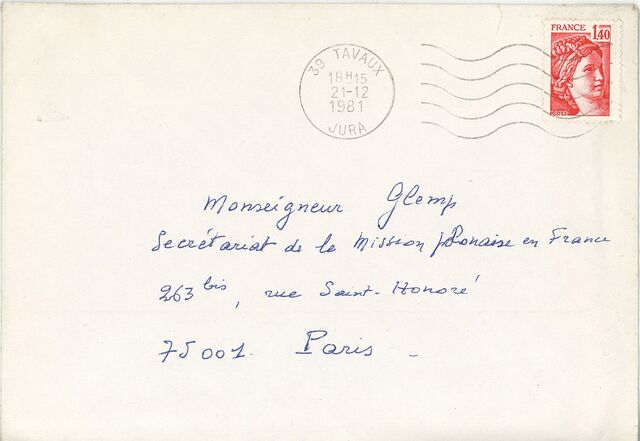 FRANCE 1,40
POSTES
39 TAVAUX
18H15
21-12
1981
JURA
Monseigneur Glemp
Secrétariat de la Mission Polonaise en France
263 bis, rue Saint-Honoré
75001. Paris -